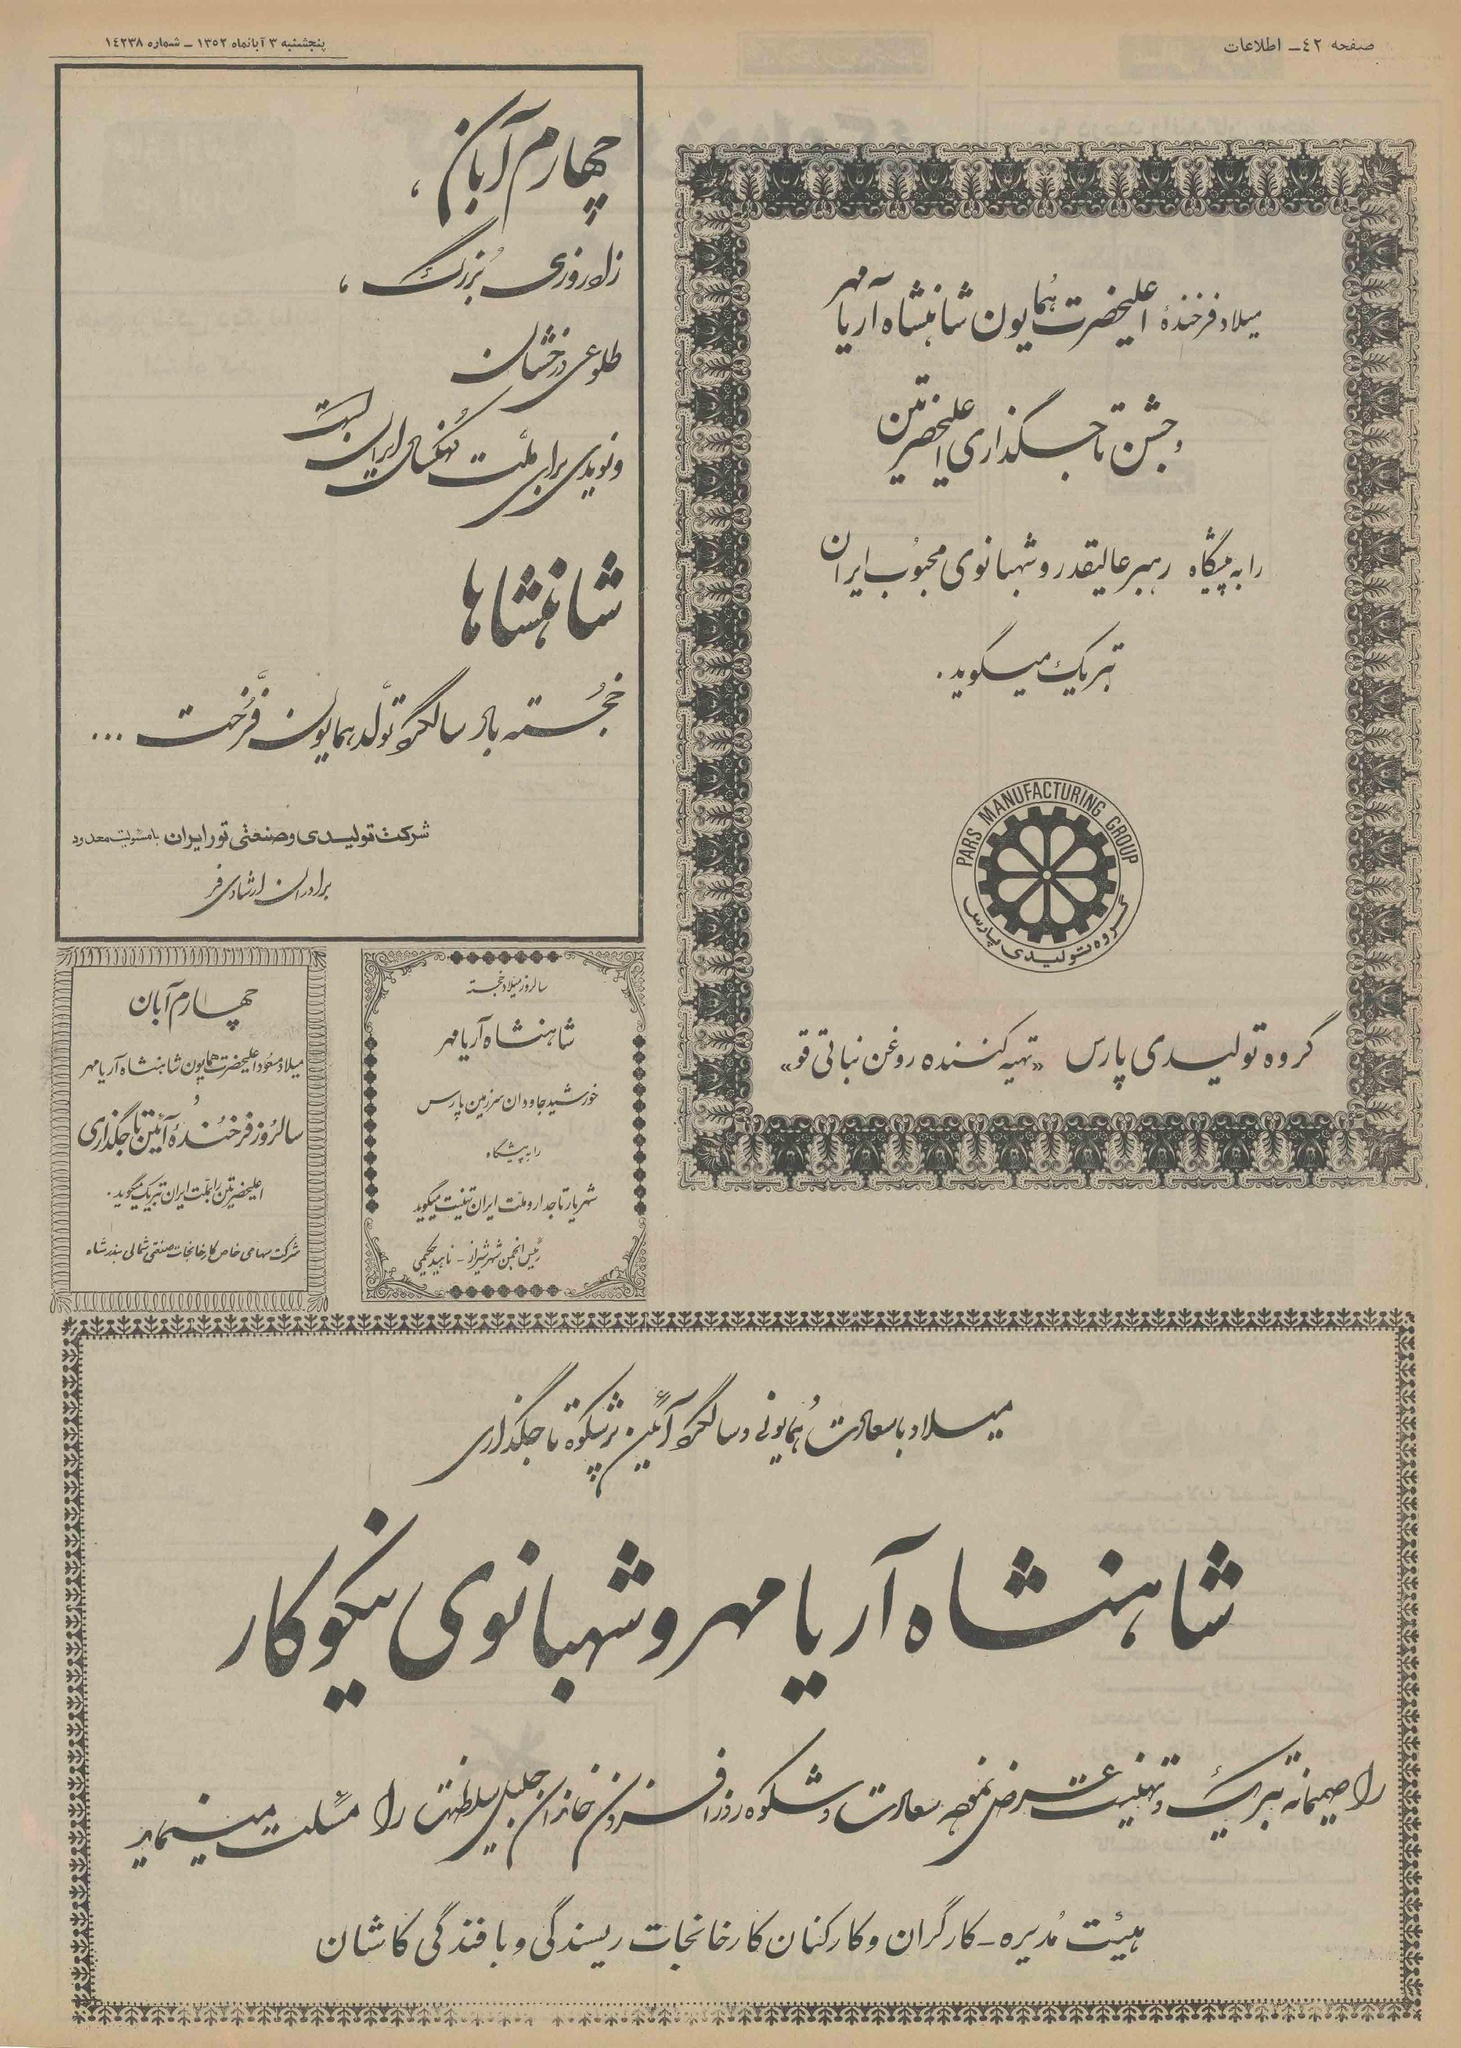 صفحه ٤٢ــ اطلاعات
پنجشنبه ٣ آبانماه ١٣٥٢ ــ شماره ١٤٢٣٨
میلاد فرخندهٔ اعلیحضرت همایون شاهنشاه آریامهر
و جشن تاجگذاری اعلیحضرتین
را به پیشگاه رهبر عالیقدر و شهبانوی محبوب ایران
تبریک میگوید .
PARS MANUFACTURING GROUP
گروه تولیدی پارس
گروه تولیدی پارس «تهیه کننده روغن نباتی قو»
چهارم آبان ،
زاد روزی بزرگ ،
طلوعی درخشان
و نویدی برای ملت کهنسال ایران است
شاهنشاها
خجسته باد سالگرد تولد همایون فرخت ...
شرکت تولیدی و صنعتی تور ایران با مسئولیت محدود
برادران ارشادی فر
سالروز میلاد خجسته
شاهنشاه آریامهر
خورشید جاودان سرزمین پارس
را به پیشگاه
شهریار تاجدار و ملت ایران تهنیت میگوید
رئیس انجمن شهر شیراز - ناهید حکیمی
چهارم آبان
میلاد مسعود اعلیحضرت همایون شاهنشاه آریامهر
و
سالروز فرخندهٔ آئین تاجگذاری
اعلیحضرتین را بملت ایران تبریک میگوید .
شرکت سهامی خاص کارخانجات صنعتی شمالی بندرشاه
میلاد با سعادت همایونی و سالگرد آئین پرشکوه تاجگذاری
شاهنشاه آریامهر و شهبانوی نیکوکار
را صمیمانه تبریک و تهنیت عرض نموده سعادت و شکوه روزافزون خاندان جلیل سلطنت را مسئلت مینماید
هیئت مدیره - کارگران و کارکنان کارخانجات ریسندگی و بافندگی کاشان